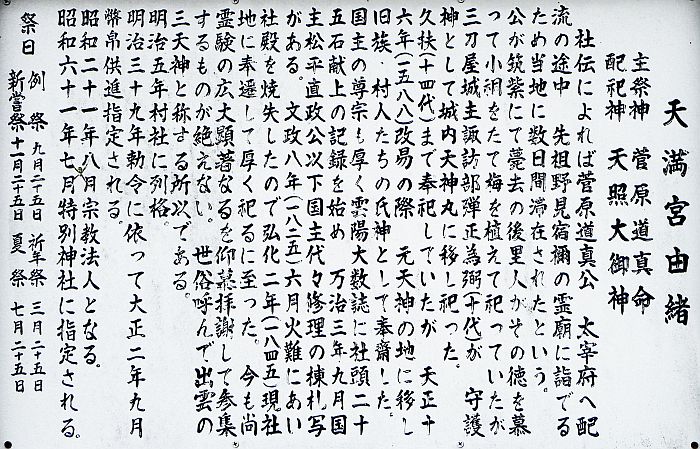 天満宮由緒
主祭神　菅原道真命
配祀神　天照大御神
社伝によれば菅原道真公　太宰府へ配
流の途中　先祖野見宿禰の霊廟に詣でる
ため当地に数日間滞在されたという。
公が筑紫にて薨去の後里人がその徳を慕
って小祠をたて梅を植えて祀っていたが
三刀屋城主諏訪部弾正為弼(十代)が　守護
神として城内天神丸に移し祀った。
久扶(十四代)まで奉祀していたが　天正十
六年(一五八八)改易の際　元天神の地に移し
旧族・村人たちの氏神として奉齋した。
国主の尊宗も厚く雲陽大数誌に社頭二十
五石献上の記録を始め　万治三年九月国
主松平直政公以下国主代々修理の棟札写
がある。　文政八年(一八二五)六月火難にあい
社殿を焼失したので弘化二年(一八四五)現社
地に奉遷して厚く祀るに至った。　今も尚
霊験の広大顕著なるを仰慕拝謝して参集
するものが絶えない。　世俗呼んで出雲の
三天神と称する所以である。
明治五年村社に列格。
明治三十九年勅令に依って大正二年九月
幣帛供進指定される。
昭和二十一年八月宗教法人となる。
昭和六十一年七月特別神社に指定される。
祭日　例　祭　九月二十五日　祈年祭　三月二十五日
新嘗祭十一月二十五日　夏　祭　七月二十五日